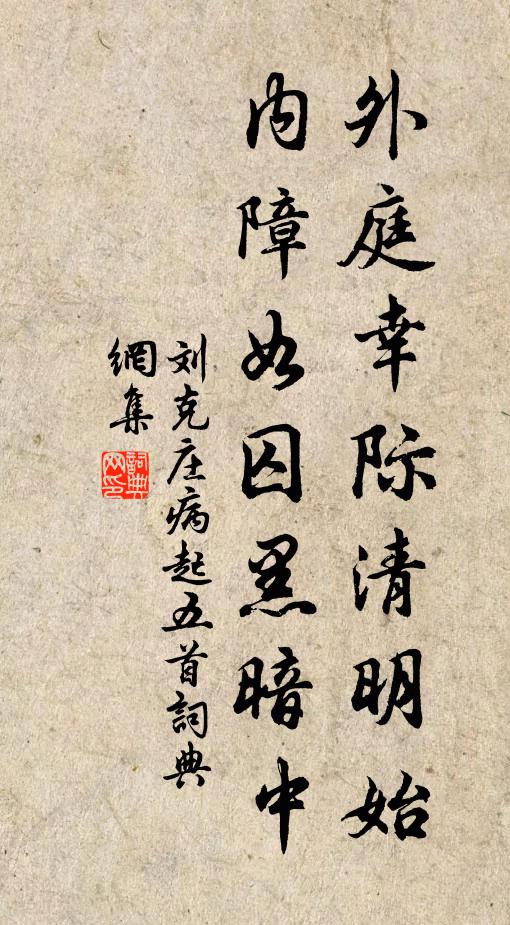 外庭幸际清明始
内障如囚黑暗中
刘克庄病起五首詞典
網集
詞典
网印